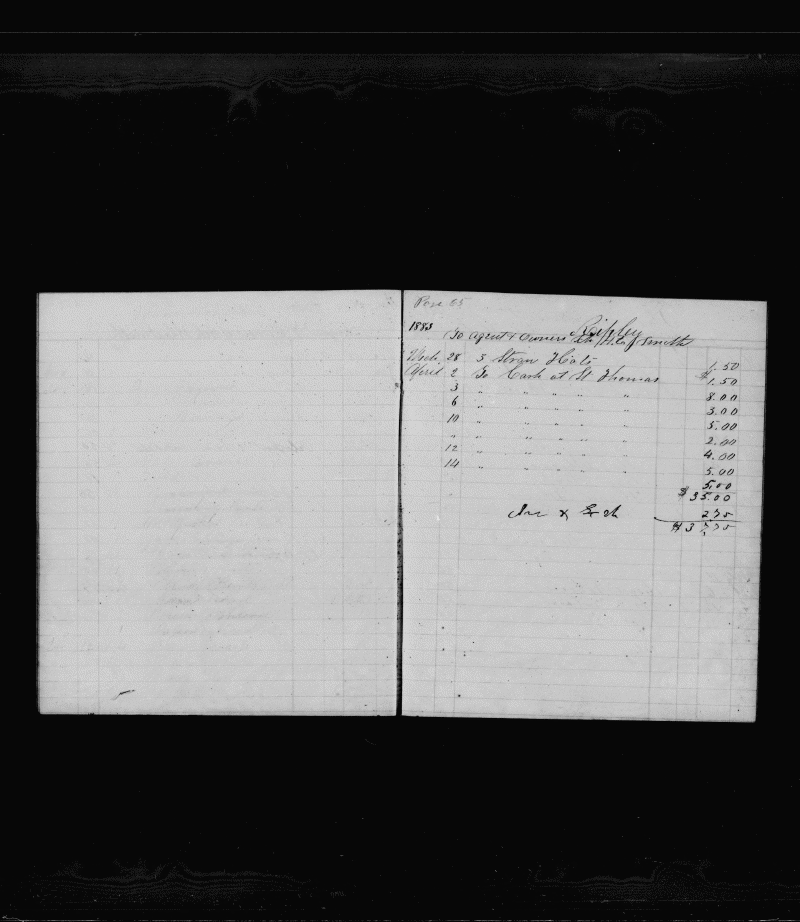 1883 Ripley
To Agent & Owners Sch H. C. Smith
Mch. 28 3 Straw Hats 1.50
$1.50
April 2 To Cash at St. Thomas 8.00
3 " " " " " 3.00
6 " " " " " 5.00
10 " " " " " 2.00
" " " " " " 4.00
12 " " " " " 5.00
14 " " " " " 5.00
$35.00
2.75
37.75